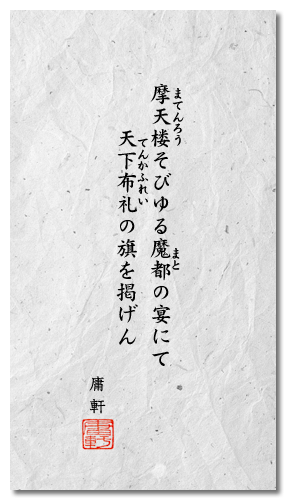 摩天楼そびゆる魔都の宴にて
まてんろう
まと
天下布礼の旗を掲げん
てんかふれい
庸軒
庸軒